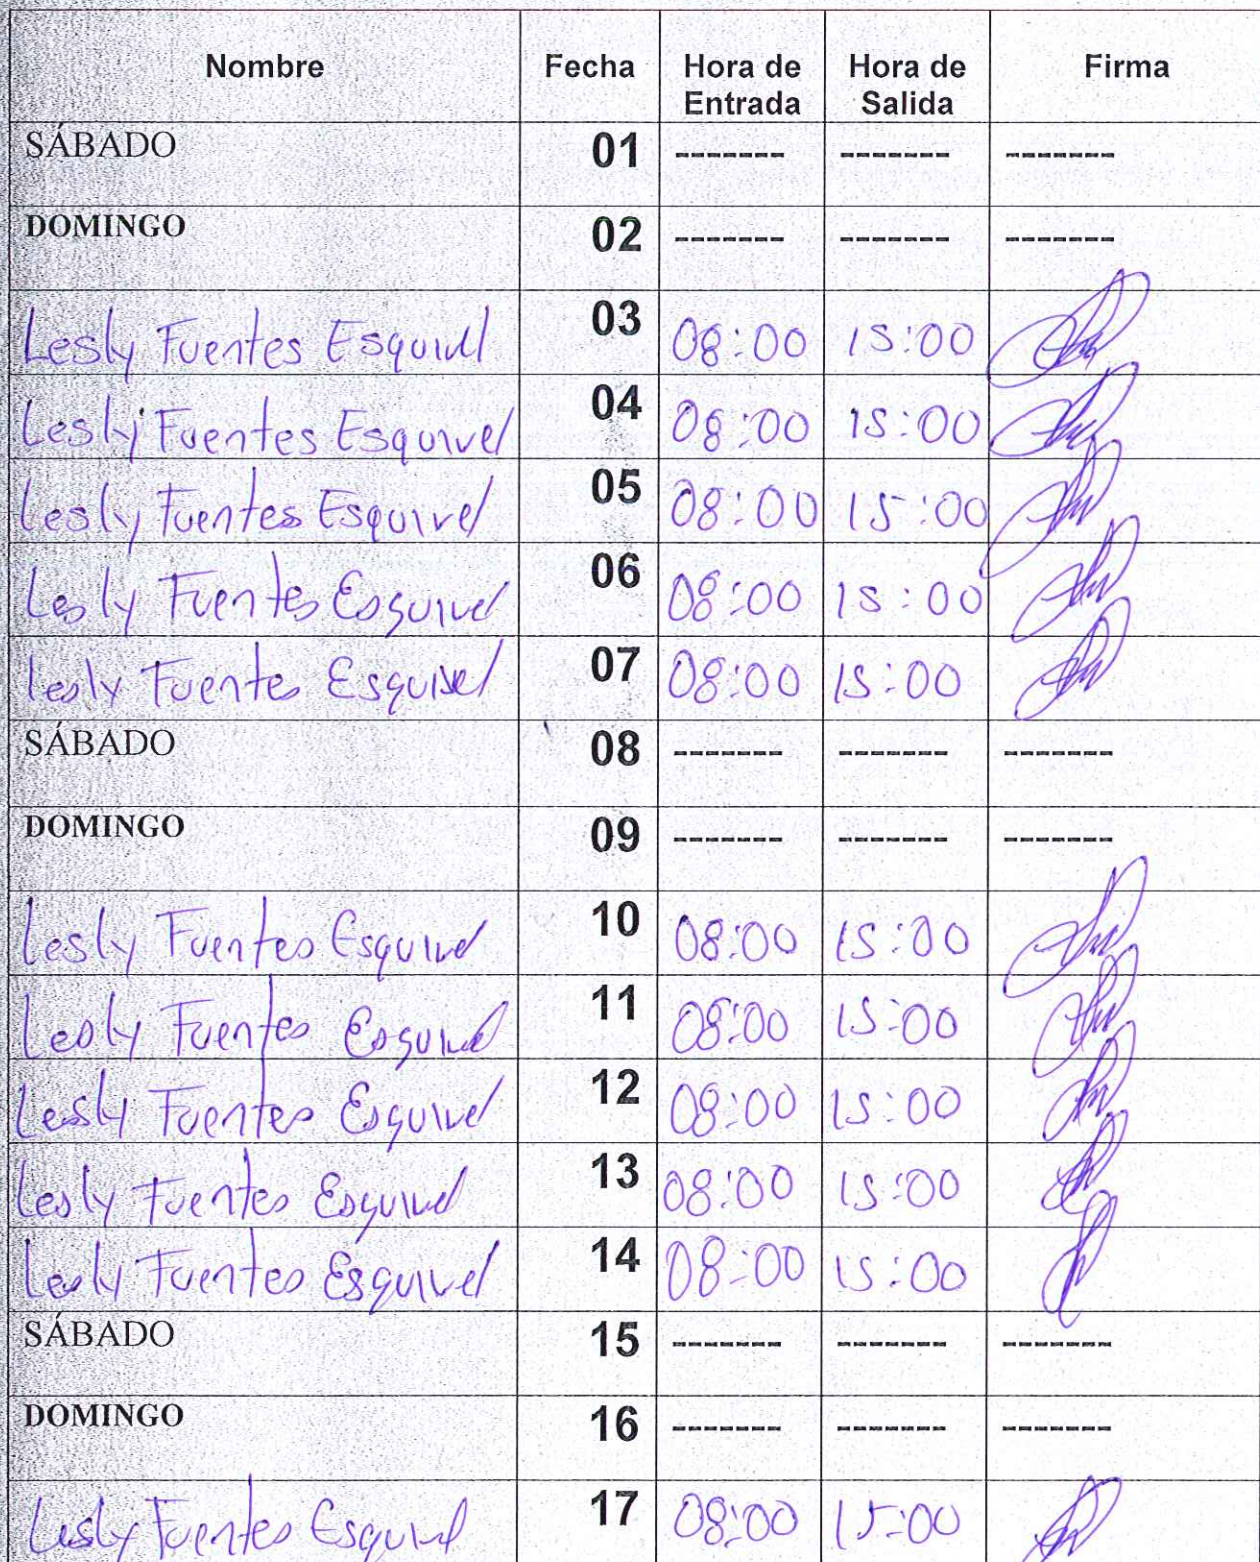 Nombre Fecha Hora de Entrada Hora de Salida Firma
SÁBADO 01 ------- ------- -------
DOMINGO 02 ------- ------- -------
Lesly Fuentes Esquivel 03 08:00 15:00
Lesly Fuentes Esquivel 04 08:00 15:00
Lesly Fuentes Esquivel 05 08:00 15:00
Lesly Fuentes Esquivel 06 08:00 15:00
Lesly Fuentes Esquivel 07 08:00 15:00
SÁBADO 08 ------- ------- -------
DOMINGO 09 ------- ------- -------
Lesly Fuentes Esquivel 10 08:00 15:00
Lesly Fuentes Esquivel 11 08:00 15:00
Lesly Fuentes Esquivel 12 08:00 15:00
Lesly Fuentes Esquivel 13 08:00 15:00
Lesly Fuentes Esquivel 14 08:00 15:00
SÁBADO 15 ------- ------- -------
DOMINGO 16 ------- ------- -------
Lesly Fuentes Esquivel 17 08:00 15:00